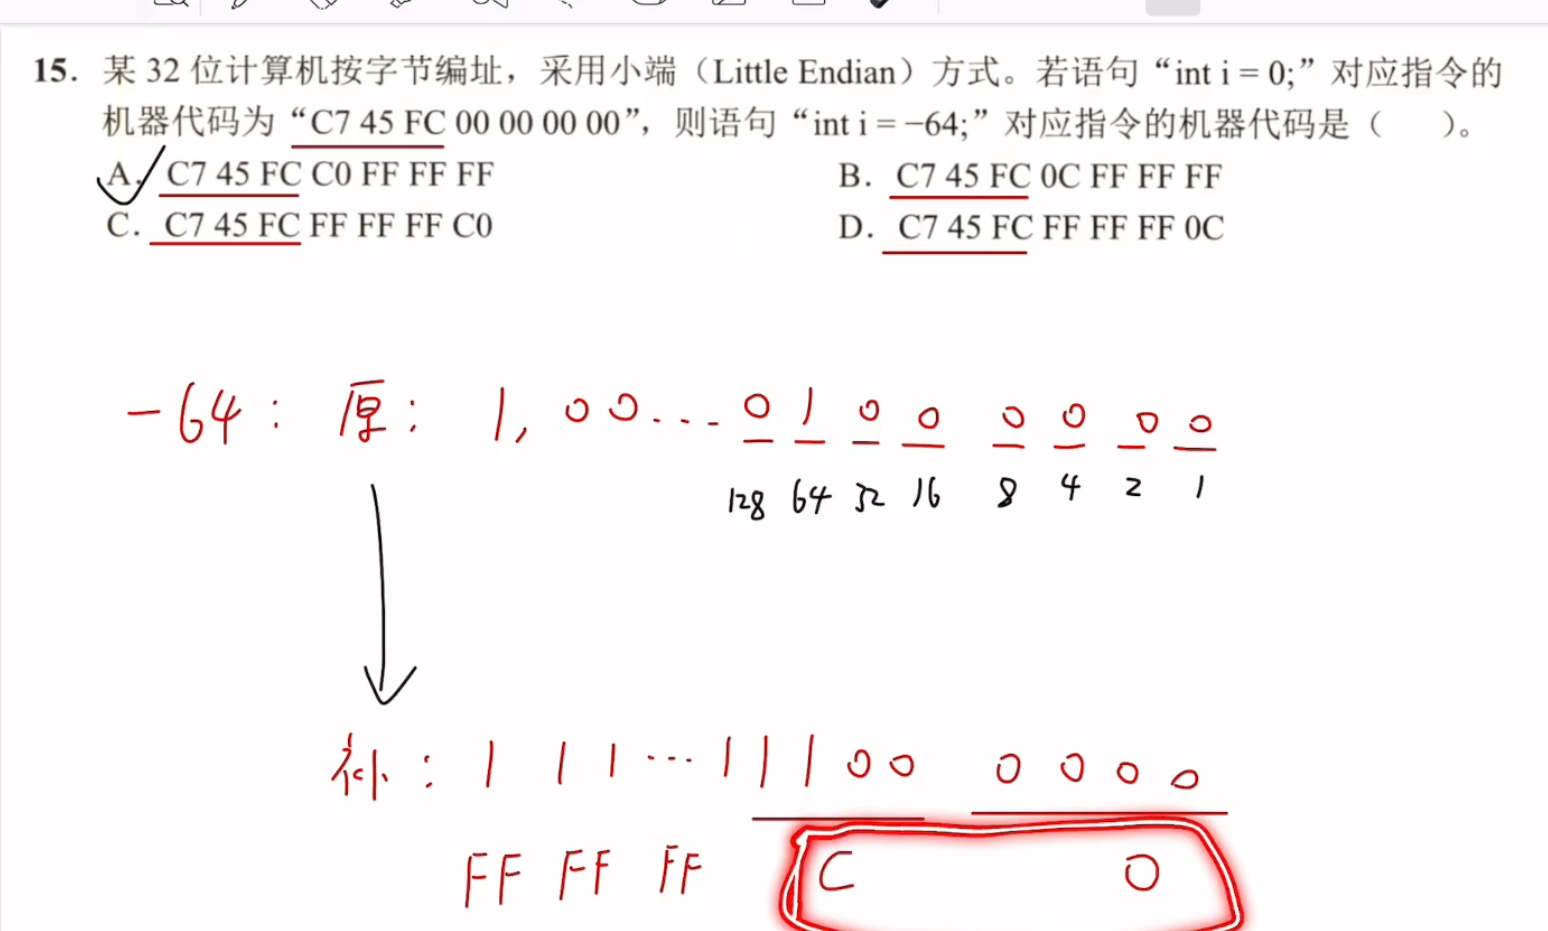 15. 某 32 位计算机按字节编址，采用小端（Little Endian）方式。若语句“int i = 0;”对应指令的
机器代码为“C7 45 FC 00 00 00 00”，则语句“int i = −64;”对应指令的机器代码是（　　）。
A. C7 45 FC C0 FF FF FF
B. C7 45 FC 0C FF FF FF
C. C7 45 FC FF FF FF C0
D. C7 45 FC FF FF FF 0C
-64: 原: 1, 00... 0 1 0 0 0 0 0 0
128 64 32 16 8 4 2 1
补: 1 1 1 ... 1 1 1 0 0 0 0 0 0
FF FF FF C 0